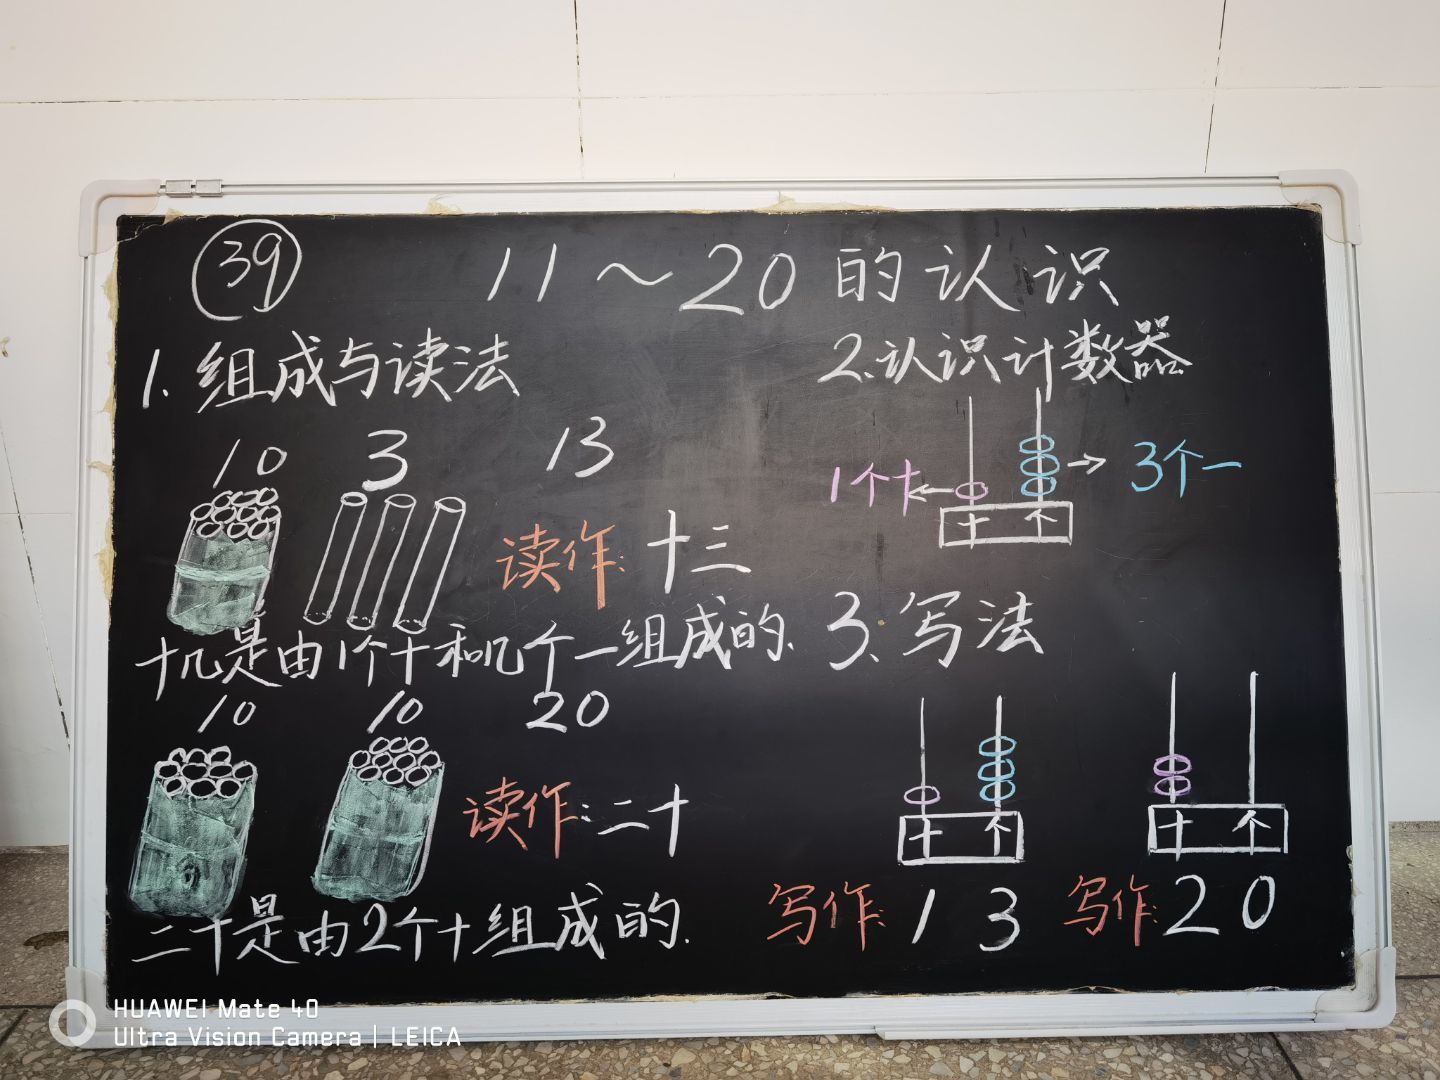 39
11～20的认识
1.组成与读法
10 3 13
读作:十三
十几是由1个十和几个一组成的.
10 10 20
读作:二十
二十是由2个十组成的.
2.认识计数器
1个十 3个一
十 个
3.写法
十 个 十 个
写作:13 写作:20
HUAWEI Mate 40
Ultra Vision Camera | LEICA